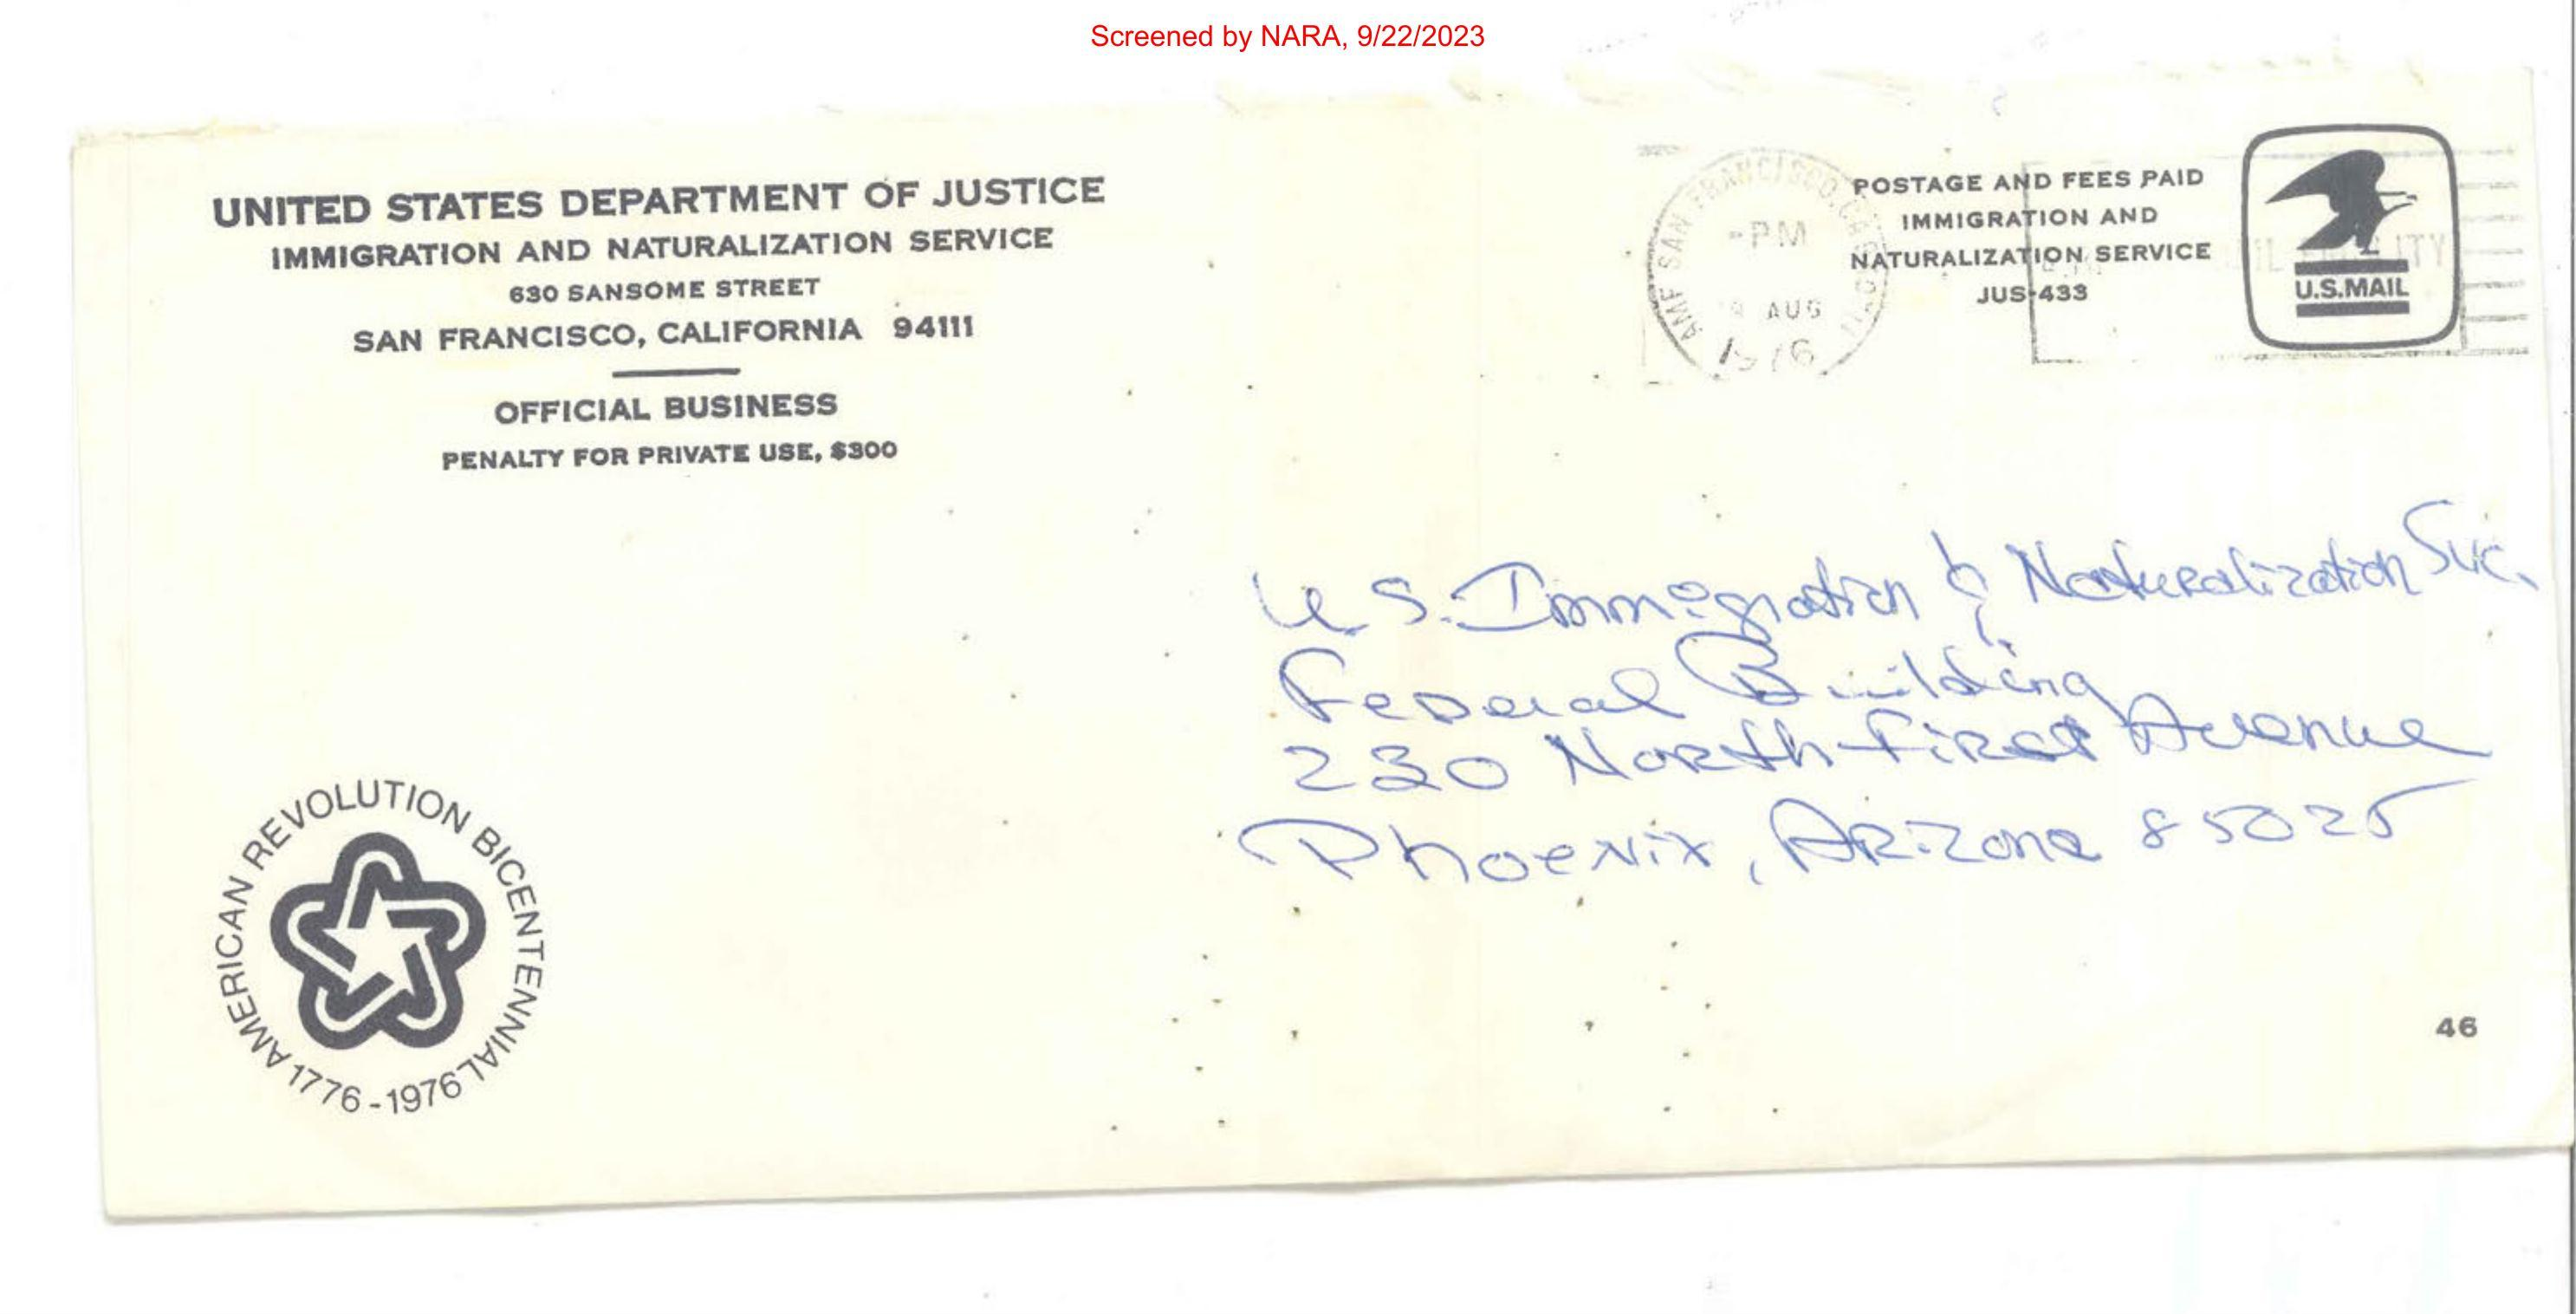 Screened by NARA, 9/22/2023
UNITED STATES DEPARTMENT OF JUSTICE
IMMIGRATION AND NATURALIZATION SERVICE
630 SANSOME STREET
SAN FRANCISCO, CALIFORNIA 94111
OFFICIAL BUSINESS
PENALTY FOR PRIVATE USE, $300
AMF SAN FRANCISCO, CA
PM
AUG
1976
POSTAGE AND FEES PAID
IMMIGRATION AND
NATURALIZATION SERVICE
JUS-433
U.S.MAIL
U.S. Immigration & Naturalization Svc.
Federal Building
230 North First Avenue
Phoenix, Arizona 85025
AMERICAN REVOLUTION BICENTENNIAL
1776-1976
46